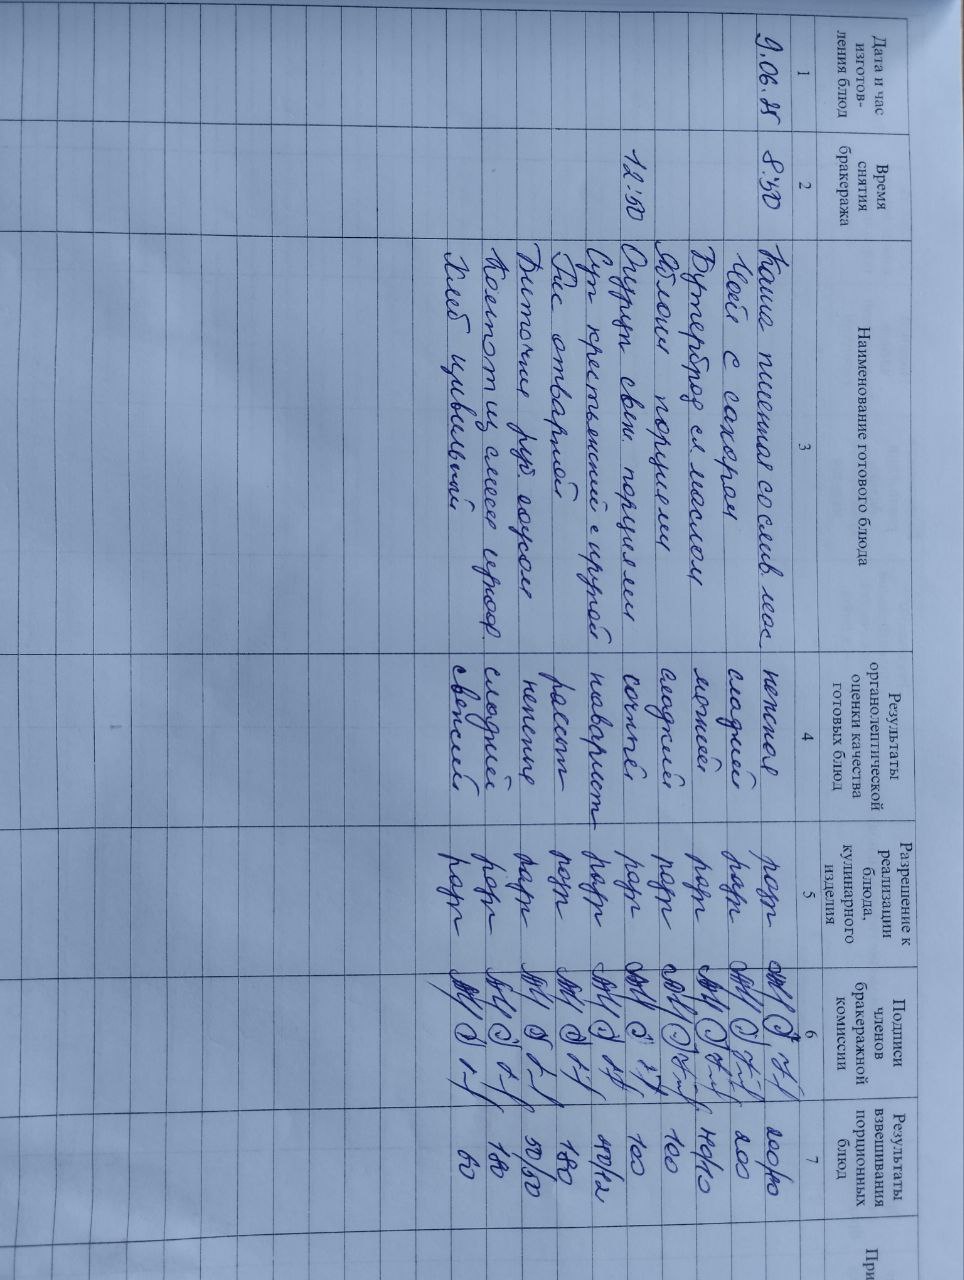 Дата и час изготов-ления блюд | Время снятия бракеража | Наименование готового блюда | Результаты органолептической оценки качества готовых блюд | Разрешение к реализации блюда, кулинарного изделия | Подписи членов бракеражной комиссии | Результаты взвешивания порционных блюд | При
1 2 3 4 5 6 7
9.06.25 8:50 Каша пшенная со слив. мас. нежная разр 200/10
Чай с сахаром сладкий разр 200
Бутерброд сл маслом разр 40/10
Яблоки порциями сладкий разр 100
12:50 Огурцы свеж порциями сочный разр 100
Суп крестьянский с крупой наварист разр
Рис отварной рассып разр 180
Биточки руб. соусом нежные разр 50/50
Компот из смеси сухофр. сладкий разр 180
Хлеб свежий разр 60